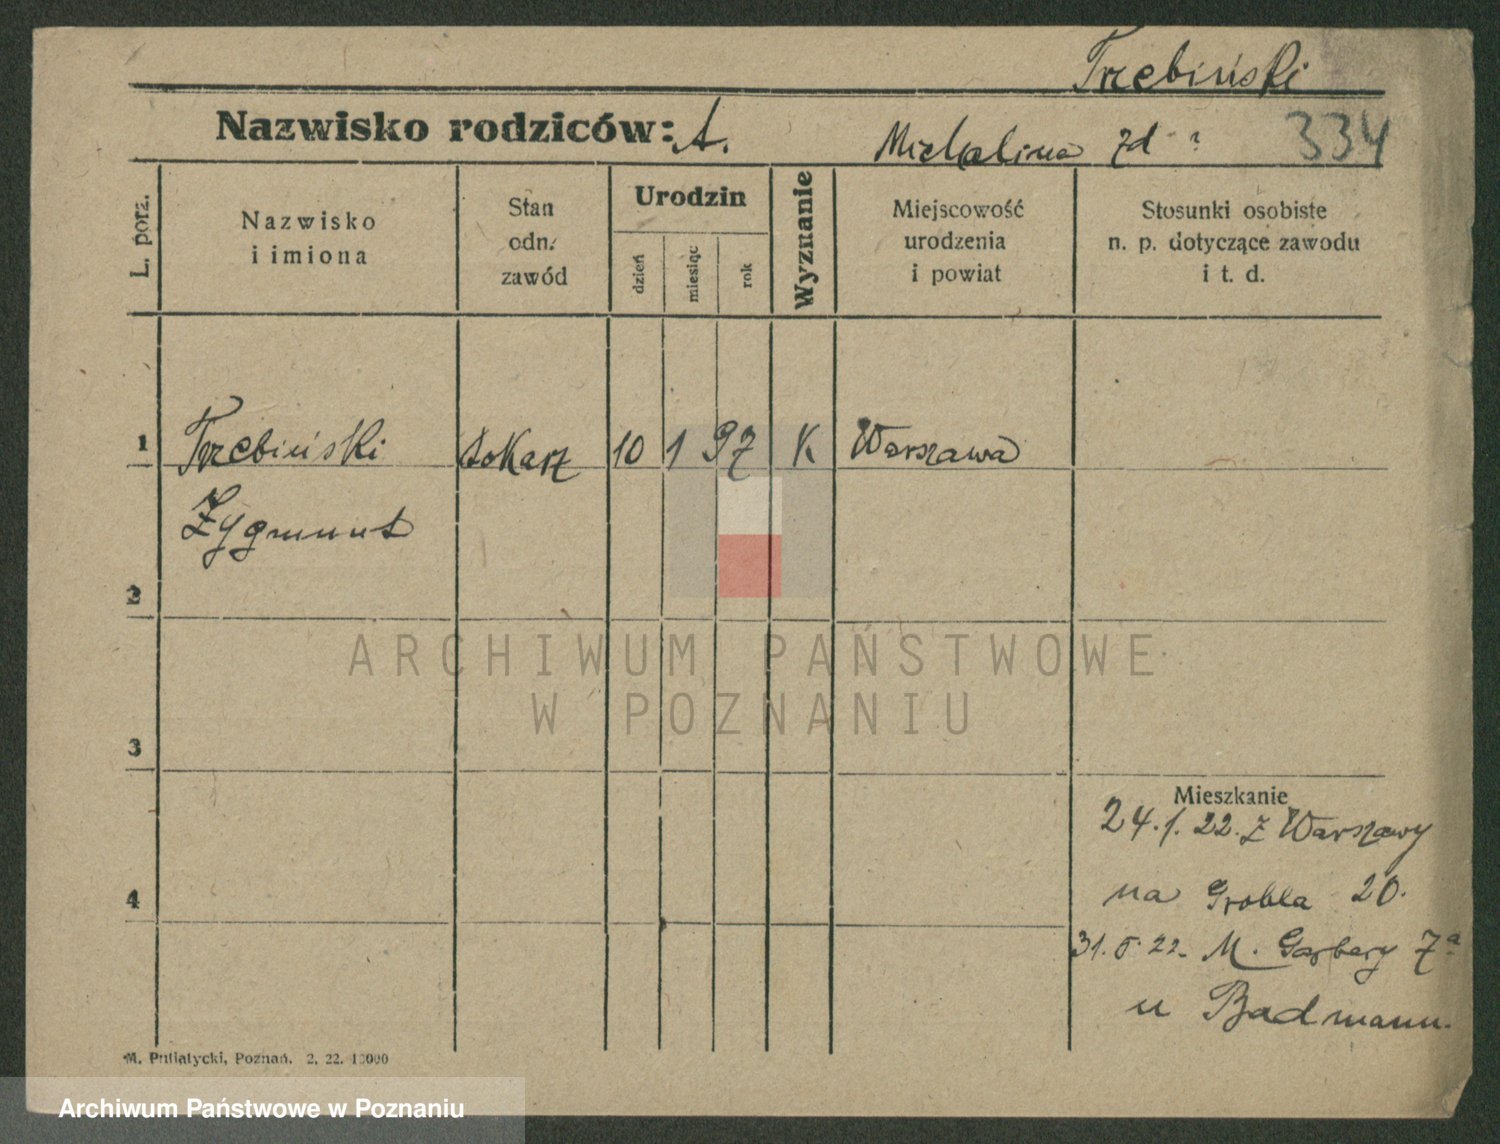 Trzebiński
Nazwisko rodziców: A. Michalina zd ? 334
L. porz.
Nazwisko
i imiona
Stan
odn.
zawód
Urodzin
dzień
miesiąc
rok
Wyznanie
Miejscowość
urodzenia
i powiat
Stosunki osobiste
n. p. dotyczące zawodu
i t. d.
1 Trzebiński tokarz 10 1 97 K Warszawa
Zygmunt
2
ARCHIWUM PAŃSTWOWE
W POZNANIU
3
Mieszkanie
24.1.22. z Warszawy
4
na Grobla 20.
31.5.22. M. Garbary 7a
u Badmann.
M. Putiatycki, Poznań. 2, 22. 10000
Archiwum Państwowe w Poznaniu